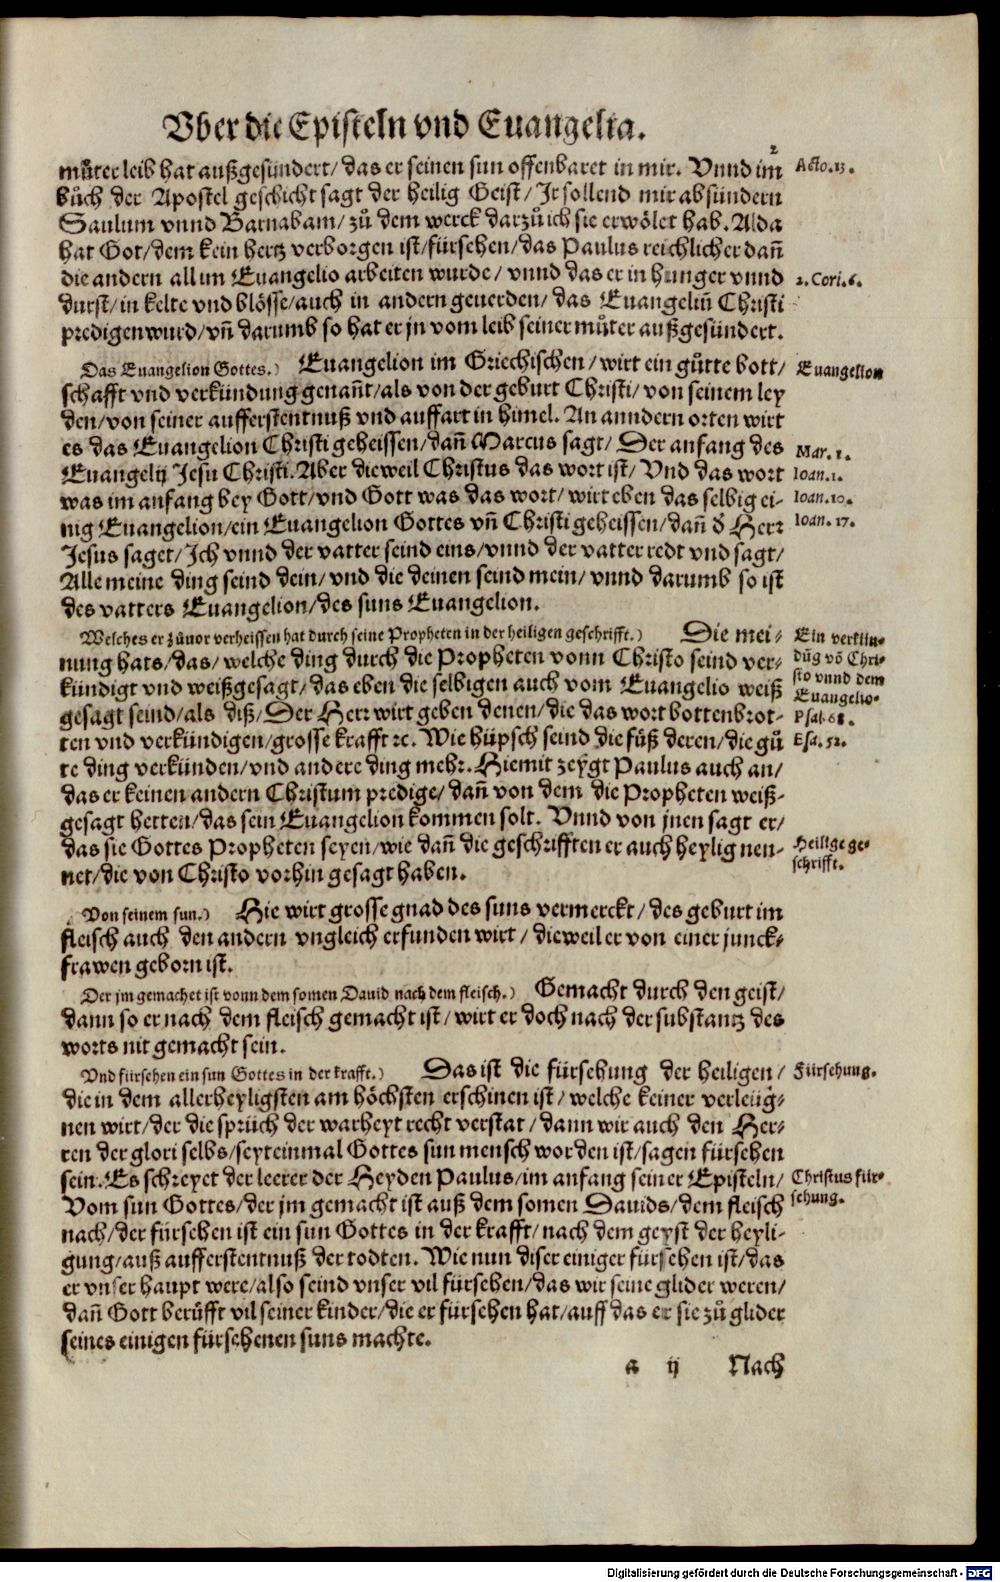 Vber die Episteln vnd Euangelia.
2
můter leib hat außgesündert/das er seinen sun offenbaret in mir. Vnnd im
Acto. 13.
bůch der Apostel geschicht sagt der heilig Geist/Ir sollend mir absündern
Saulum vnnd Barnabam/zů dem werck darzů ich sie erwölet hab. Alda
hat Got/dem kein hertz verborgen ist/fürsehen/das Paulus reichlicher dañ
die andern all im Euangelio arbeiten wurde/vnnd das er in hunger vnnd
2. Cori. 6.
durst/in kelte vnd blösse/auch in andern geuerden/das Euangeliũ Christi
predigen wurd/vñ darumb so hat er jn vom leib seiner můter außgesündert.
Das Euangelion Gottes.) Euangelion im Griechischen/wirt ein gůtte bott/
Euangelion
schafft vnd verkündung genañt/als von der geburt Christi/von seinem ley
den/von seiner aufferstentnuß vnd auffart in himel. An anndern orten wirt
es das Euangelion Christi geheissen/dañ Marcus sagt/Der anfang des
Mar. 1.
Euangelij Jesu Christi. Aber dieweil Christus das wort ist/Vnd das wort
Ioan. 1.
was im anfang bey Gott/vnd Gott was das wort/wirt eben das selbig ei-
Ioan. 10.
nig Euangelion/ein Euangelion Gottes vñ Christi geheissen/dañ d̊ Herr
Ioan. 17.
Jesus saget/Ich vnnd der vatter seind eins/vnnd der vatter redt vnd sagt/
Alle meine ding seind dein/vnd die deinen seind mein/vnnd darumb so ist
des vatters Euangelion/des suns Euangelion.
Welches er zůuor verheissen hat durch seine Propheten in der heiligen geschrifft.) Die mei-
Ein verkün-
nung hats/das/welche ding durch die Propheten vonn Christo seind ver-
dũg võ Chri-
kündigt vnd weißgesagt/das eben die selbigen auch vom Euangelio weiß
sto vnnd dem
Euangelio.
gesagt seind/als diß/Der Herr wirt geben denen/die das wort bottenbrot-
Psal. 68.
ten vnd verkündigen/grosse krafft ⁊c. Wie hüpsch seind die füß deren/die gů
Esa. 52.
te ding verkünden/vnd andere ding mehr. Hiemit zeygt Paulus auch an/
das er keinen andern Christum predige/dañ von dem die Propheten weiß-
gesagt hetten/das sein Euangelion kommen solt. Vnnd von jnen sagt er/
das sie Gottes Propheten seyen/wie dañ die geschrifften er auch heylig nen-
Heilige ge-
schrifft.
net/die von Christo vorhin gesagt haben.
Von seinem sun.) Hie wirt grosse gnad des suns vermerckt/des geburt im
fleisch auch den andern vngleich erfunden wirt/dieweil er von einer junck-
frawen geborn ist.
Der jm gemachet ist vonn dem somen Dauid nach dem fleisch.) Gemacht durch den geist/
dann so er nach dem fleisch gemacht ist/wirt er doch nach der substantz des
worts nit gemacht sein.
Vnd fürsehen ein sun Gottes in der krafft.) Das ist die fürsehung der heiligen/
Fürsehung.
die in dem allerheyligsten am höchsten erschinen ist/welche keiner verleüg-
nen wirt/der die sprüch der warheyt recht verstat/dann wir auch den Her-
ren der glori selbs/seyteinmal Gottes sun mensch worden ist/sagen fürsehen
sein. Es schreyet der leerer der Heyden Paulus/im anfang seiner Episteln/
Christus für-
sehung.
Vom sun Gottes/der jm gemacht ist auß dem somen Dauids/dem fleisch
nach/der fürsehen ist ein sun Gottes in der krafft/nach dem geyst der heyli-
gung/auß aufferstentnuß der todten. Wie nun diser einiger fürsehen ist/das
er vnser haupt were/also seind vnser vil fürsehen/das wir seine glider weren/
dañ Gott berůfft vil seiner kinder/die er fürsehen hat/auff das er sie zů glider
seines einigen fürsehenen suns machte.
a ij Nach
Digitalisierung gefördert durch die Deutsche Forschungsgemeinschaft - DFG